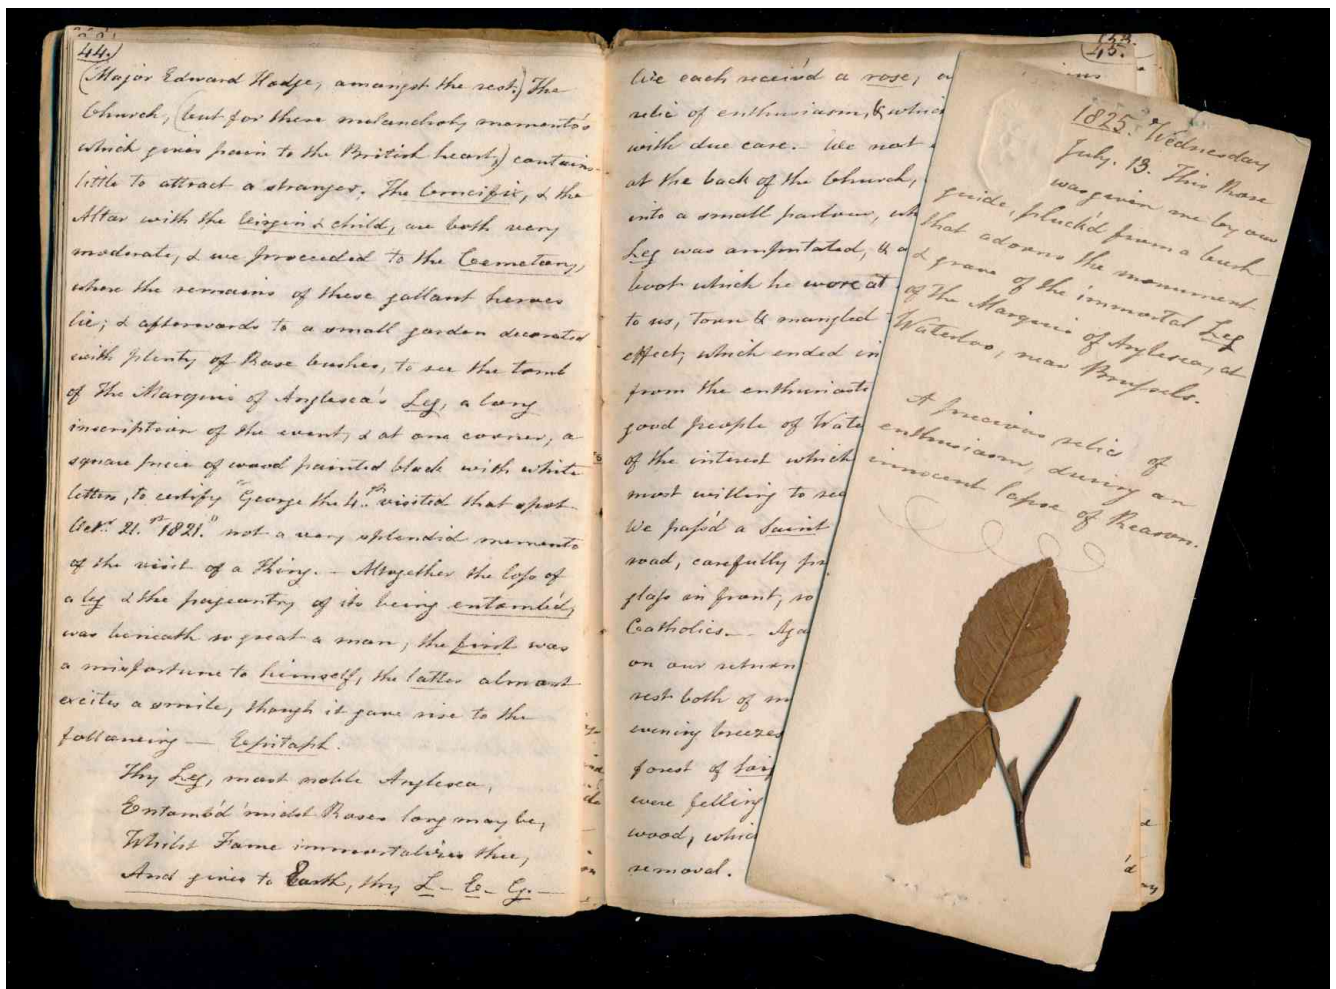 44.)
(Major Edward Hodge, amongst the rest.) The
Church, (but for these melancholy momento's
which gives pain to the British heart,) contains
little to attract a stranger. The Crucifix, & the
Altar with the Virgin & child, are both very
moderate, & we proceeded to the Cemetery,
where the remains of these gallant heroes
lie; & afterwards to a small garden decorated
with plenty of Rose bushes, to see the tomb
of the Marquis of Anglesea's Leg, a long
inscription of the event, & at one corner, a
square piece of wood painted black with white
letters, to certify "George the 4.th visited that spot
Octr. 21.st 1821." not a very splendid memento
of the visit of a King. — Altogether the loss of
a leg & the pageantry of its being entomb'd,
was beneath so great a man, the first was
a misfortune to himself, the latter almost
excites a smile, though it gave rise to the
following — Epitaph.
Thy Leg, most noble Anglesea,
Entomb'd 'midst Roses long may be,
Whilst Fame immortalizes thee,
And gives to Earth, thy L - E - G. -
45.
We each receiv'd a rose, a
relic of enthusiasm, & whic
with due care. — We not
at the back of the Church,
into a small parlour, wh
Leg was amputated, & a
boot which he wore at
to us, torn & mangled
effect, which ended in
from the enthusiasti
good people of Wate
of the interest which
most willing to see
We pass'd a Saint
road, carefully pr
glass in front, so
Catholics. — Aga
on our return
rest both of m
evening breezes
forest of Soig
were felling
wood, whic
removal.
1825. Wednesday
July. 13. This Rose
was given me by our
guide, pluck'd from a bush
that adorns the monument
& grave of the immortal Leg
of the Marquis of Anglesea, at
Waterloo, near Brussels.
A precious relic of
enthusiasm, during an
innocent lapse of Reason.